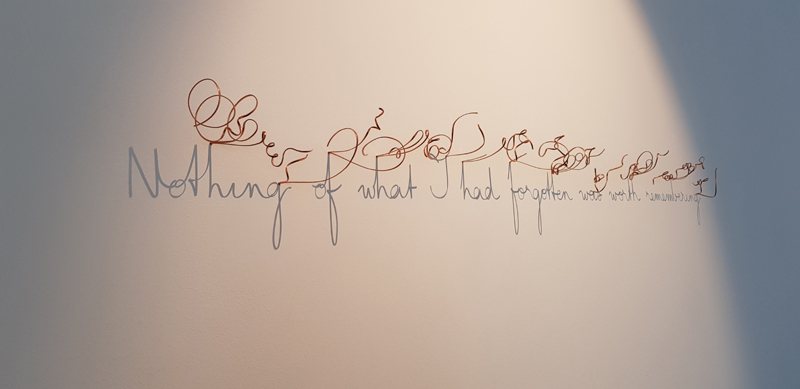 Nothing of what I had forgotten was worth remembering